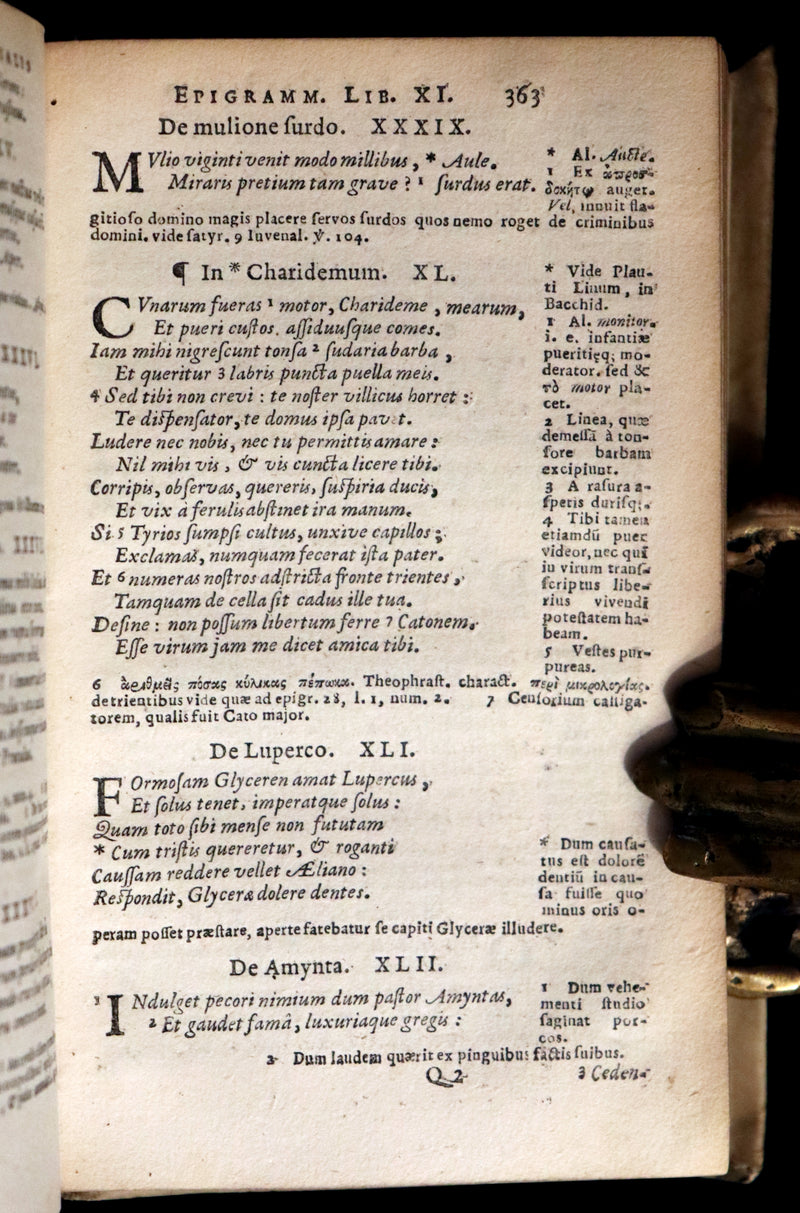 EPIGRAMM. LIB. XI. 363
De mulione ſurdo. XXXIX.
MVlio viginti venit modo millibus, * Aule.
Miraris pretium tam grave? 1 ſurdus erat.
* Al. Aucte.
1 Ex ἀπροσ-
δοκήτῳ auget.
Vel, innuit fla-
gitioſo domino magis placere ſervos ſurdos quos nemo roget de criminibus
domini. vide ſatyr. 9 Iuvenal. ℣. 104.
¶ In * Charidemum. XL.
CVnarum fueras 1 motor, Charideme, mearum,
Et pueri cuſtos, aſſiduuſque comes.
Iam mihi nigreſcunt tonſa 2 ſudaria barba,
Et queritur 3 labris puncta puella meis.
4 Sed tibi non crevi: te noſter villicus horret:
Te diſpenſator, te domus ipſa pavet.
Ludere nec nobis, nec tu permittis amare:
Nil mihi vis, & vis cuncta licere tibi.
Corripis, obſervas, quereris, ſuſpiria ducis,
Et vix à ferulis abſtinet ira manum.
Si 5 Tyrios ſumpſi cultus, unxive capillos;
Exclamas, numquam fecerat iſta pater.
Et 6 numeras noſtros adſtricta fronte trientes,
Tamquam de cella ſit cadus ille tua.
Deſine: non poſſum libertum ferre 7 Catonem.
Eſſe virum jam me dicet amica tibi.
* Vide Plau-
ti Linum, in
Bacchid.
1 Al. monitor.
i. e. infantiæ
pueritięq; mo-
derator. ſed &
τὸ motor pla-
cet.
2 Linea, quæ
demeſſā à ton-
ſore barbam
excipiunt.
3 A raſura a-
ſperis duriſq;.
4 Tibi tamen
etiamdū puer
videor, nec qui
in virum tranſ-
ſcriptus libe-
rius vivendi
poteſtatem ha-
beam.
5 Veſtes pur-
pureas.
6 ἀριθμεῖς πόσας κύλικας πέπωκε. Theophraſt. charact. περὶ μικρολογίας.
de trientibus vide quæ ad epigr. 28, l. 1, num. 2. 7 Cenſorium caſtiga-
torem, qualis fuit Cato major.
De Luperco. XLI.
FOrmoſam Glyceren amat Lupercus,
Et ſolus tenet, imperatque ſolus:
Quam toto ſibi menſe non fututam
* Cum triſtis quereretur, & roganti
Cauſſam reddere vellet Æliano:
Reſpondit, Glyceræ dolere dentes.
* Dum cauſa-
tus eſt dolorē
dentiū in cau-
ſa fuiſſe quo
minus oris o-
peram poſſet præſtare, aperte fatebatur ſe capiti Glyceræ illudere.
De Amynta. XLII.
1 INdulget pecori nimium dum paſtor Amyntas,
2 Et gaudet famâ, luxuriaque gregis:
1 Dum vehe-
menti ſtudio
ſaginat por-
cos.
2 Dum laudem quærit ex pinguibus factis ſuibus.
Q 2
3 Ceden-